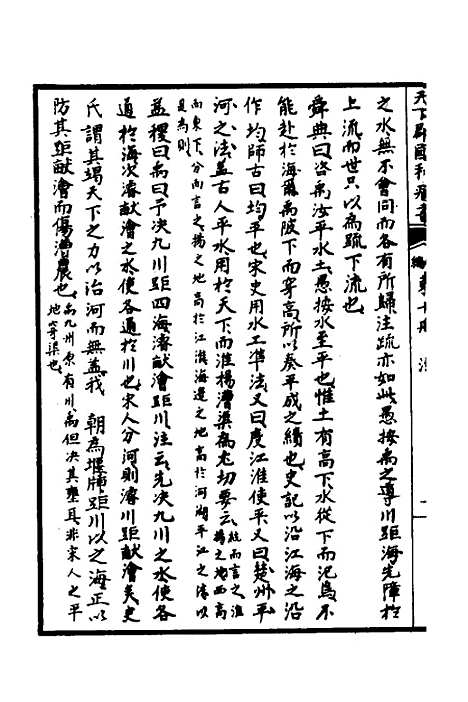 天下郡國利病書
編 第十册 淮
之水無不會同而各有所歸注疏亦如此愚按禹之導川距海先障於
上流而世只以為疏下流也
舜典曰咨禹汝平水土愚按水至平也惟土有高下水從下而氾烏不
能赴於海爾禹陂下而穿高所以奏平成之績也史記以沿江海之沿
作均師古曰均平也宋史用水工準法又曰度江淮使平又曰楚州平
河之法蓋古人平水用於天下而淮楊漕渠為尤切要云
揚之地高於江淮海邊之地高於河湖平江之法以
而東下分而言之
是為則
益稷曰禹曰予决九川距四海濬畎澮距川注云先决九川之水使各
通於海次濬畎澮之水使各通於川也宋人分河則濬川距畎澮矣史
氏謂其竭天下之力以治河而無益我 朝為堰障距川以之海正以
防其距畎澮而傷漕農也
禹九州原有川禹但决其壅耳非宋人之平
地穿渠也